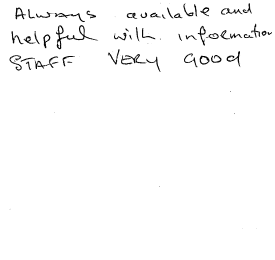 Always available and
helpful with information
STAFF VERY GOOd